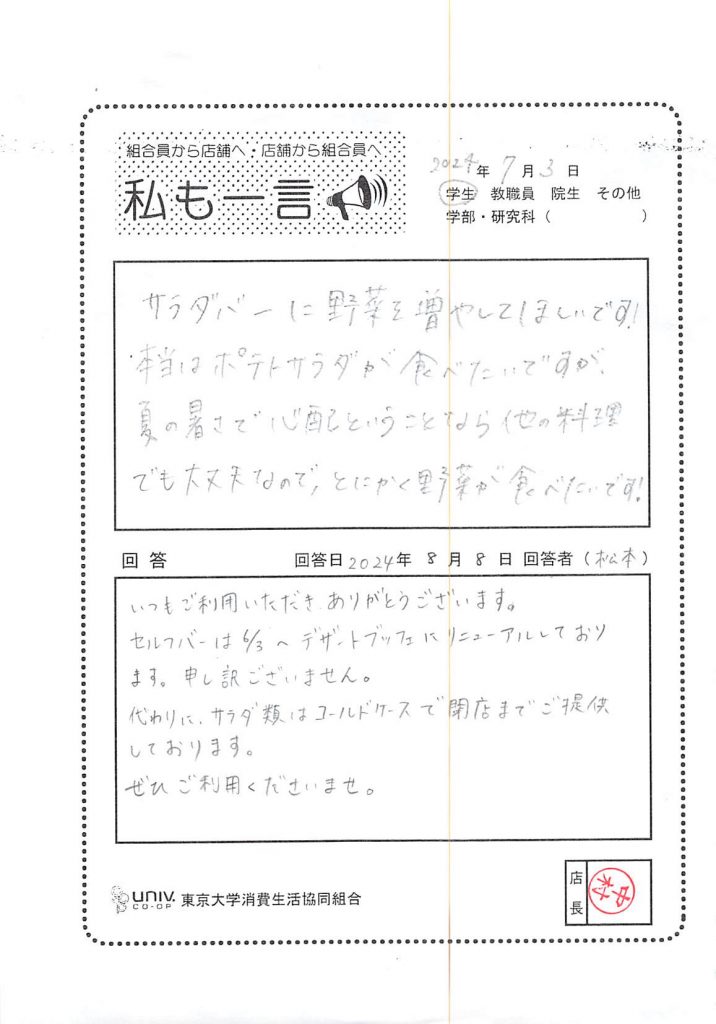 組合員から店舗へ・店舗から組合員へ
私も一言
2024年 7月 3日
学生 教職員 院生 その他
学部・研究科（ ）
サラダバーに野菜を増やしてほしいです!
本当はポテトサラダが食べたいですが、
夏の暑さで心配ということなら他の料理
でも大丈夫なので、とにかく野菜が食べたいです!
回答 回答日2024年 8月 8日 回答者（松本）
いつもご利用いただき ありがとうございます。
セルフバーは6/3〜デザートブッフェにリニューアルしており
ます。申し訳ございません。
代わりに、サラダ類はコールドケースで閉店までご提供
しております。
ぜひご利用くださいませ。
UNIV. CO-OP 東京大学消費生活協同組合
店長 中村